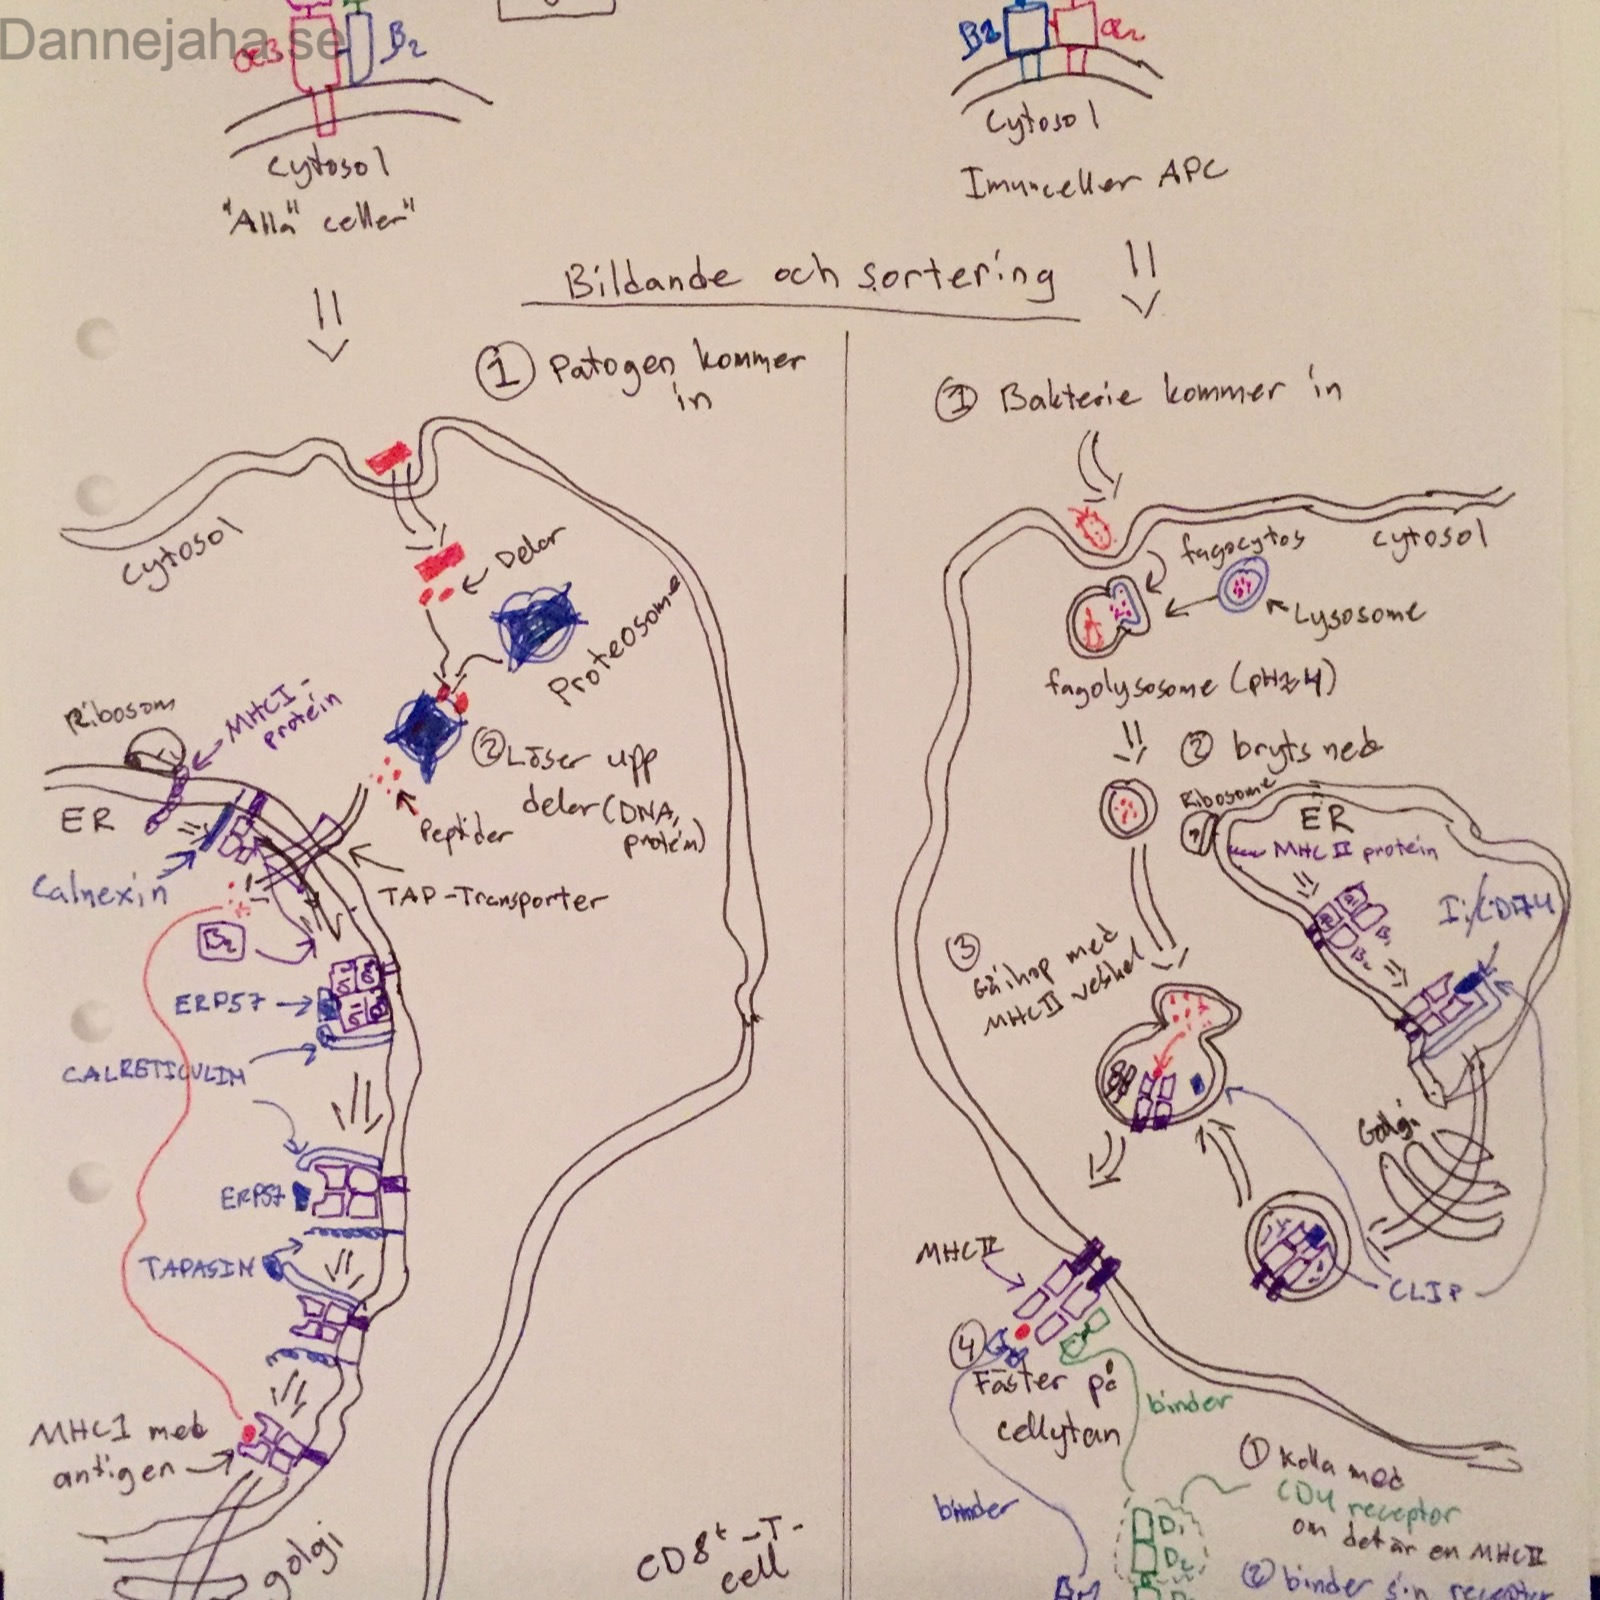 Dannejaha.se
α3
B2
B2
α2
Cytosol
"Alla" celler"
Cytosol
Imunceller APC
Bildande och sortering
① Patogen kommer
in
Cytosol
Delar
Proteosome
Ribosom
MHCI-
protein
② Löser upp
delar (DNA,
protein)
Peptider
ER
Calnexin
TAP-Transporter
B2
ERP57
CALRETICULIN
ERP57
TAPASIN
MHCI med
antigen
golgi
CD8+ -T-
cell
① Bakterie kommer in
cytosol
fagocytos
Lysosome
fagolysosome (pH≈4)
② bryts ned
Ribosome
ER
MHC II protein
B1
B2
Ii/CD74
③
Gå ihop med
MHC II vesikel
Golgi
CLIP
MHC II
④
Fäster på
cellytan
binder
binder
① Kolla med
CD4 receptor
om det är en MHC II
② binder sin receptor
D1
D2